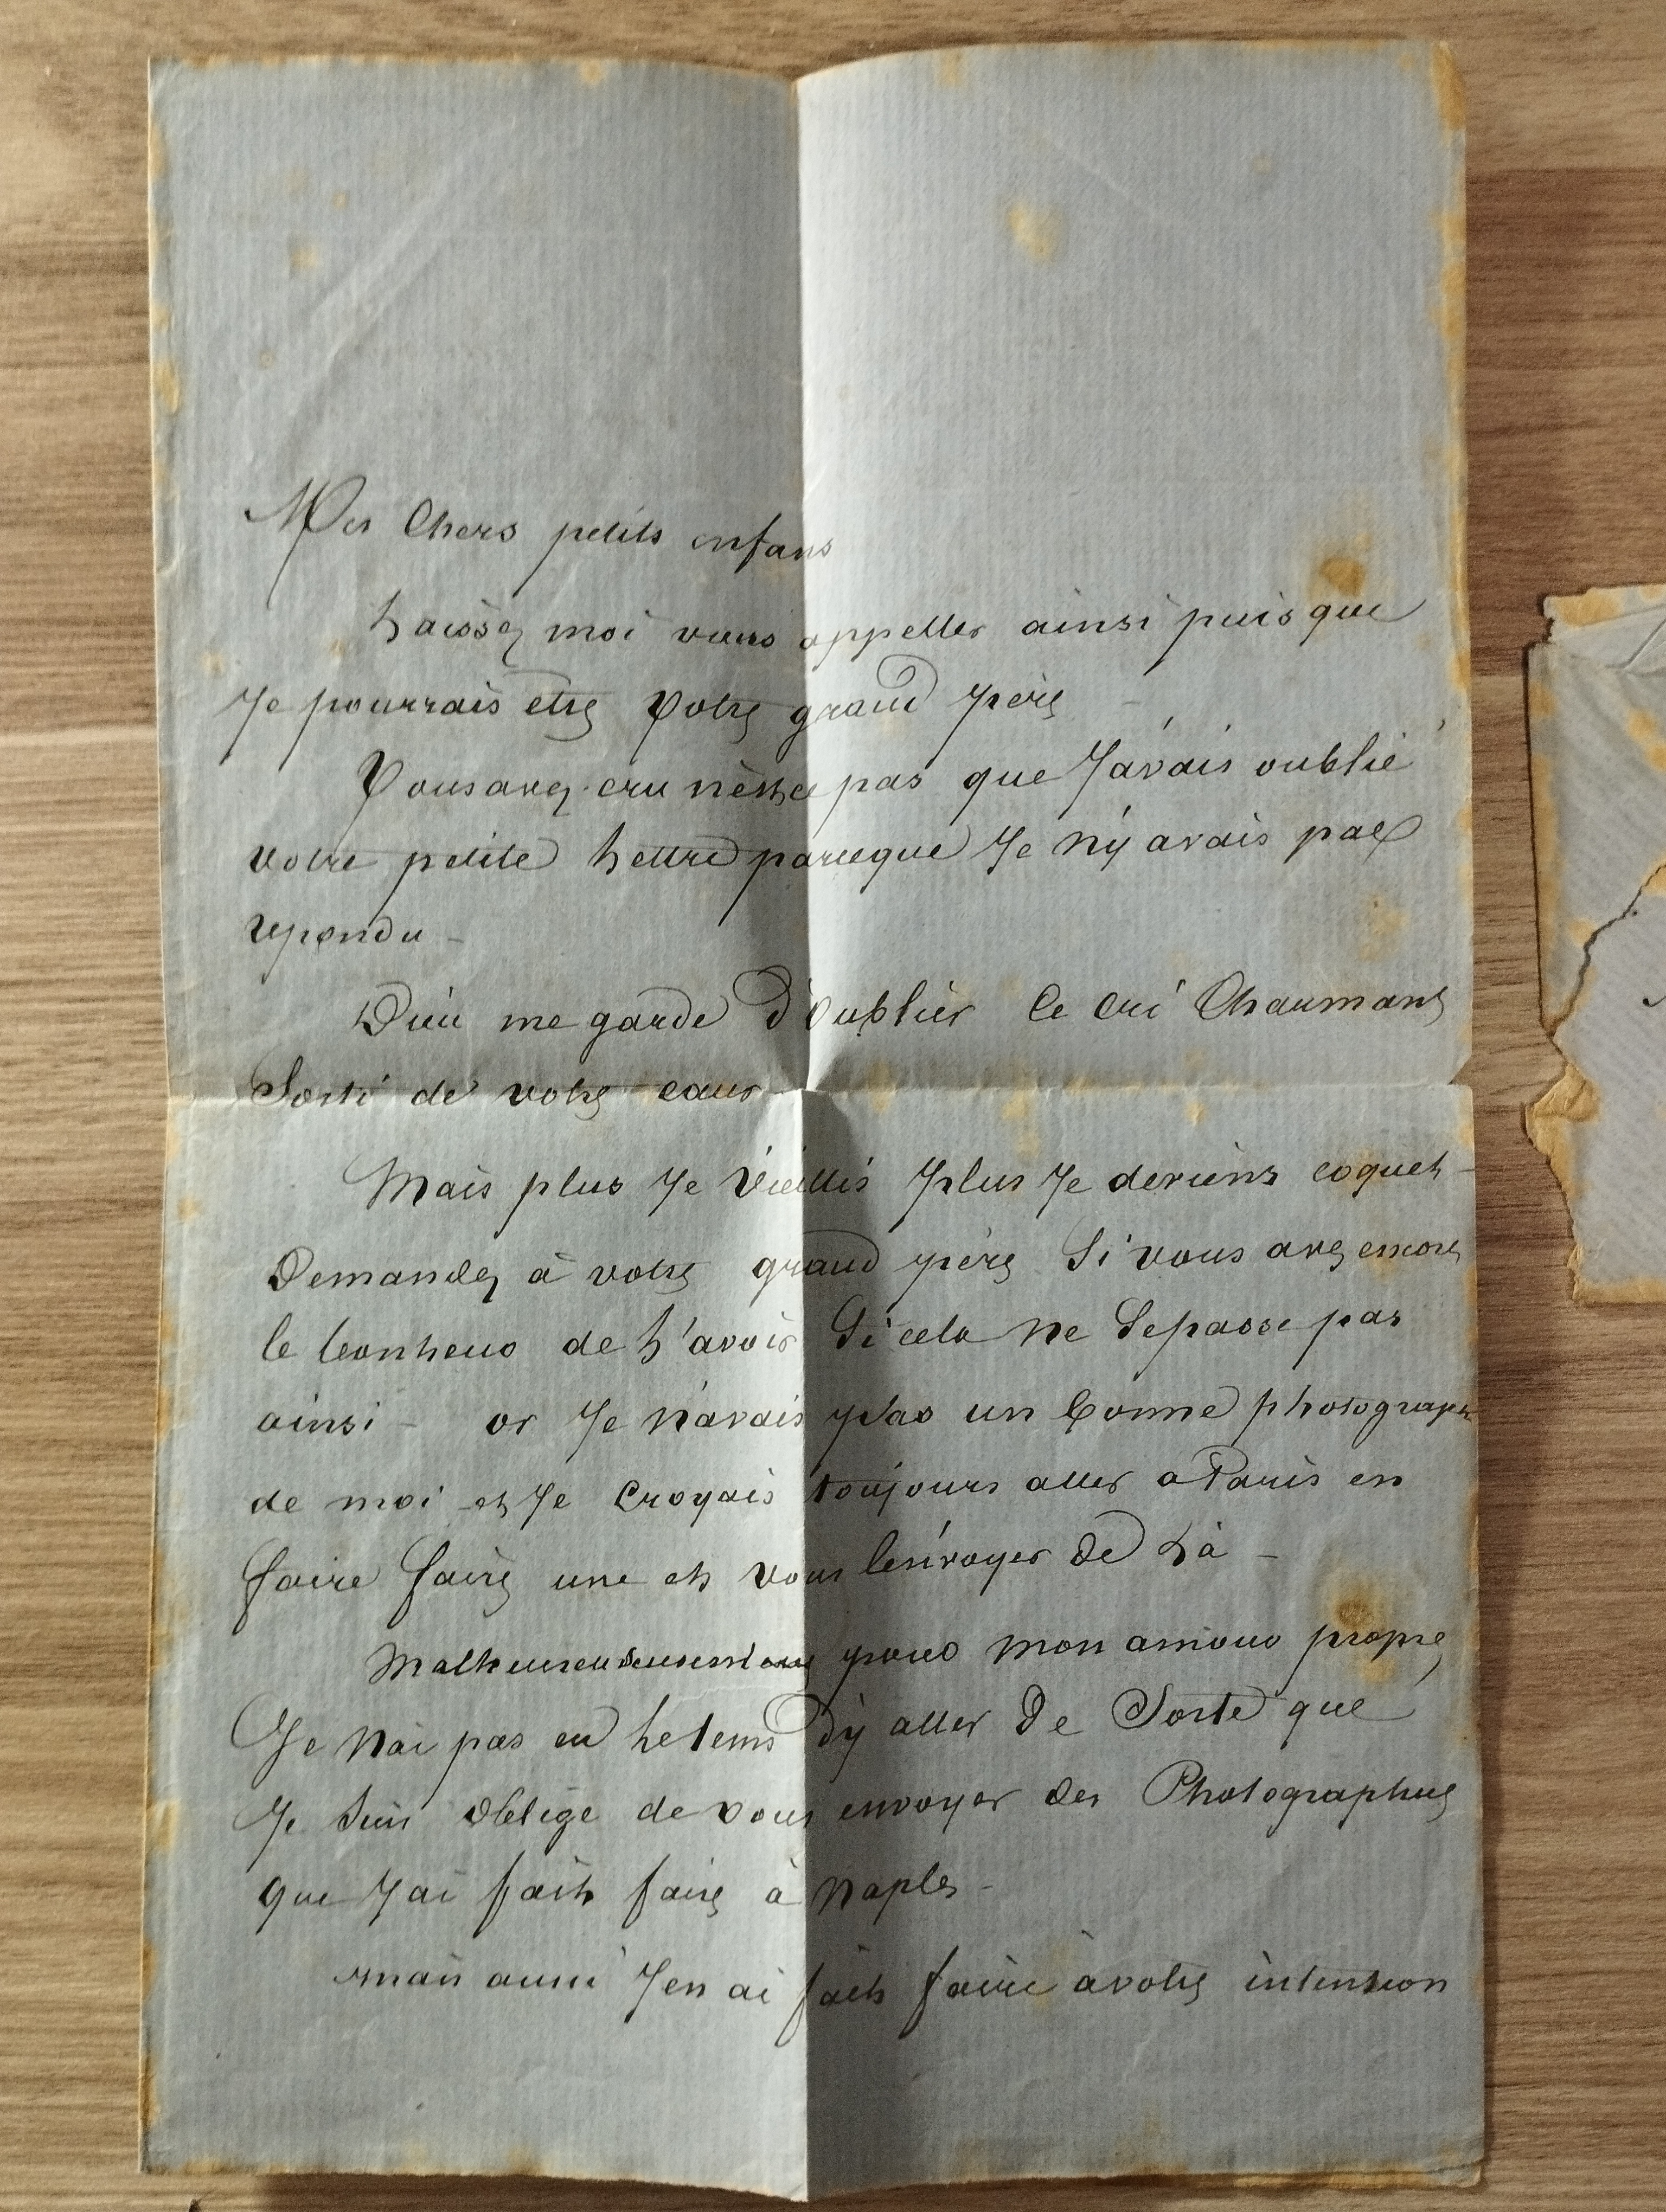 Mes chers petits enfans
Laissez moi vous appeller ainsi puisque
Je pourrais etre Votre grand père
Vous avez cru n'est ce pas que J'avais oublié
votre petite Lettre parceque Je n'y avais pas
repondu -
Dieu me garde d'oublier le cri Charmant
Sorti de votre cœur -
Mais plus Je vieillis plus Je deviens coquet -
Demandez à votre grand père Si vous avez encore
le bonheur de L'avoir Si cela ne Se passe pas
ainsi - or Je n'avais pas un bonne photographie
de moi et Je Croyais toujours aller a Paris en
faire faire une et vous l'envoyer de Là -
Malheureusement pour mon amour propre
Je n'ai pas eu Le tems d'y aller De Sorte que
Je Suis obligé de vous envoyer des Photographies
que J'ai fait faire à Naples -
mais aussi J'en ai fait faire à votre intention